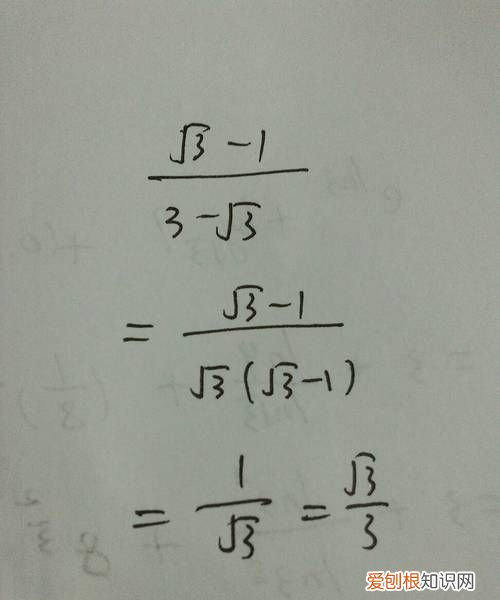 √3 - 1
3 - √3
= √3 - 1
√3 (√3 - 1)
= 1/√3 = √3/3
爱刨根知识网